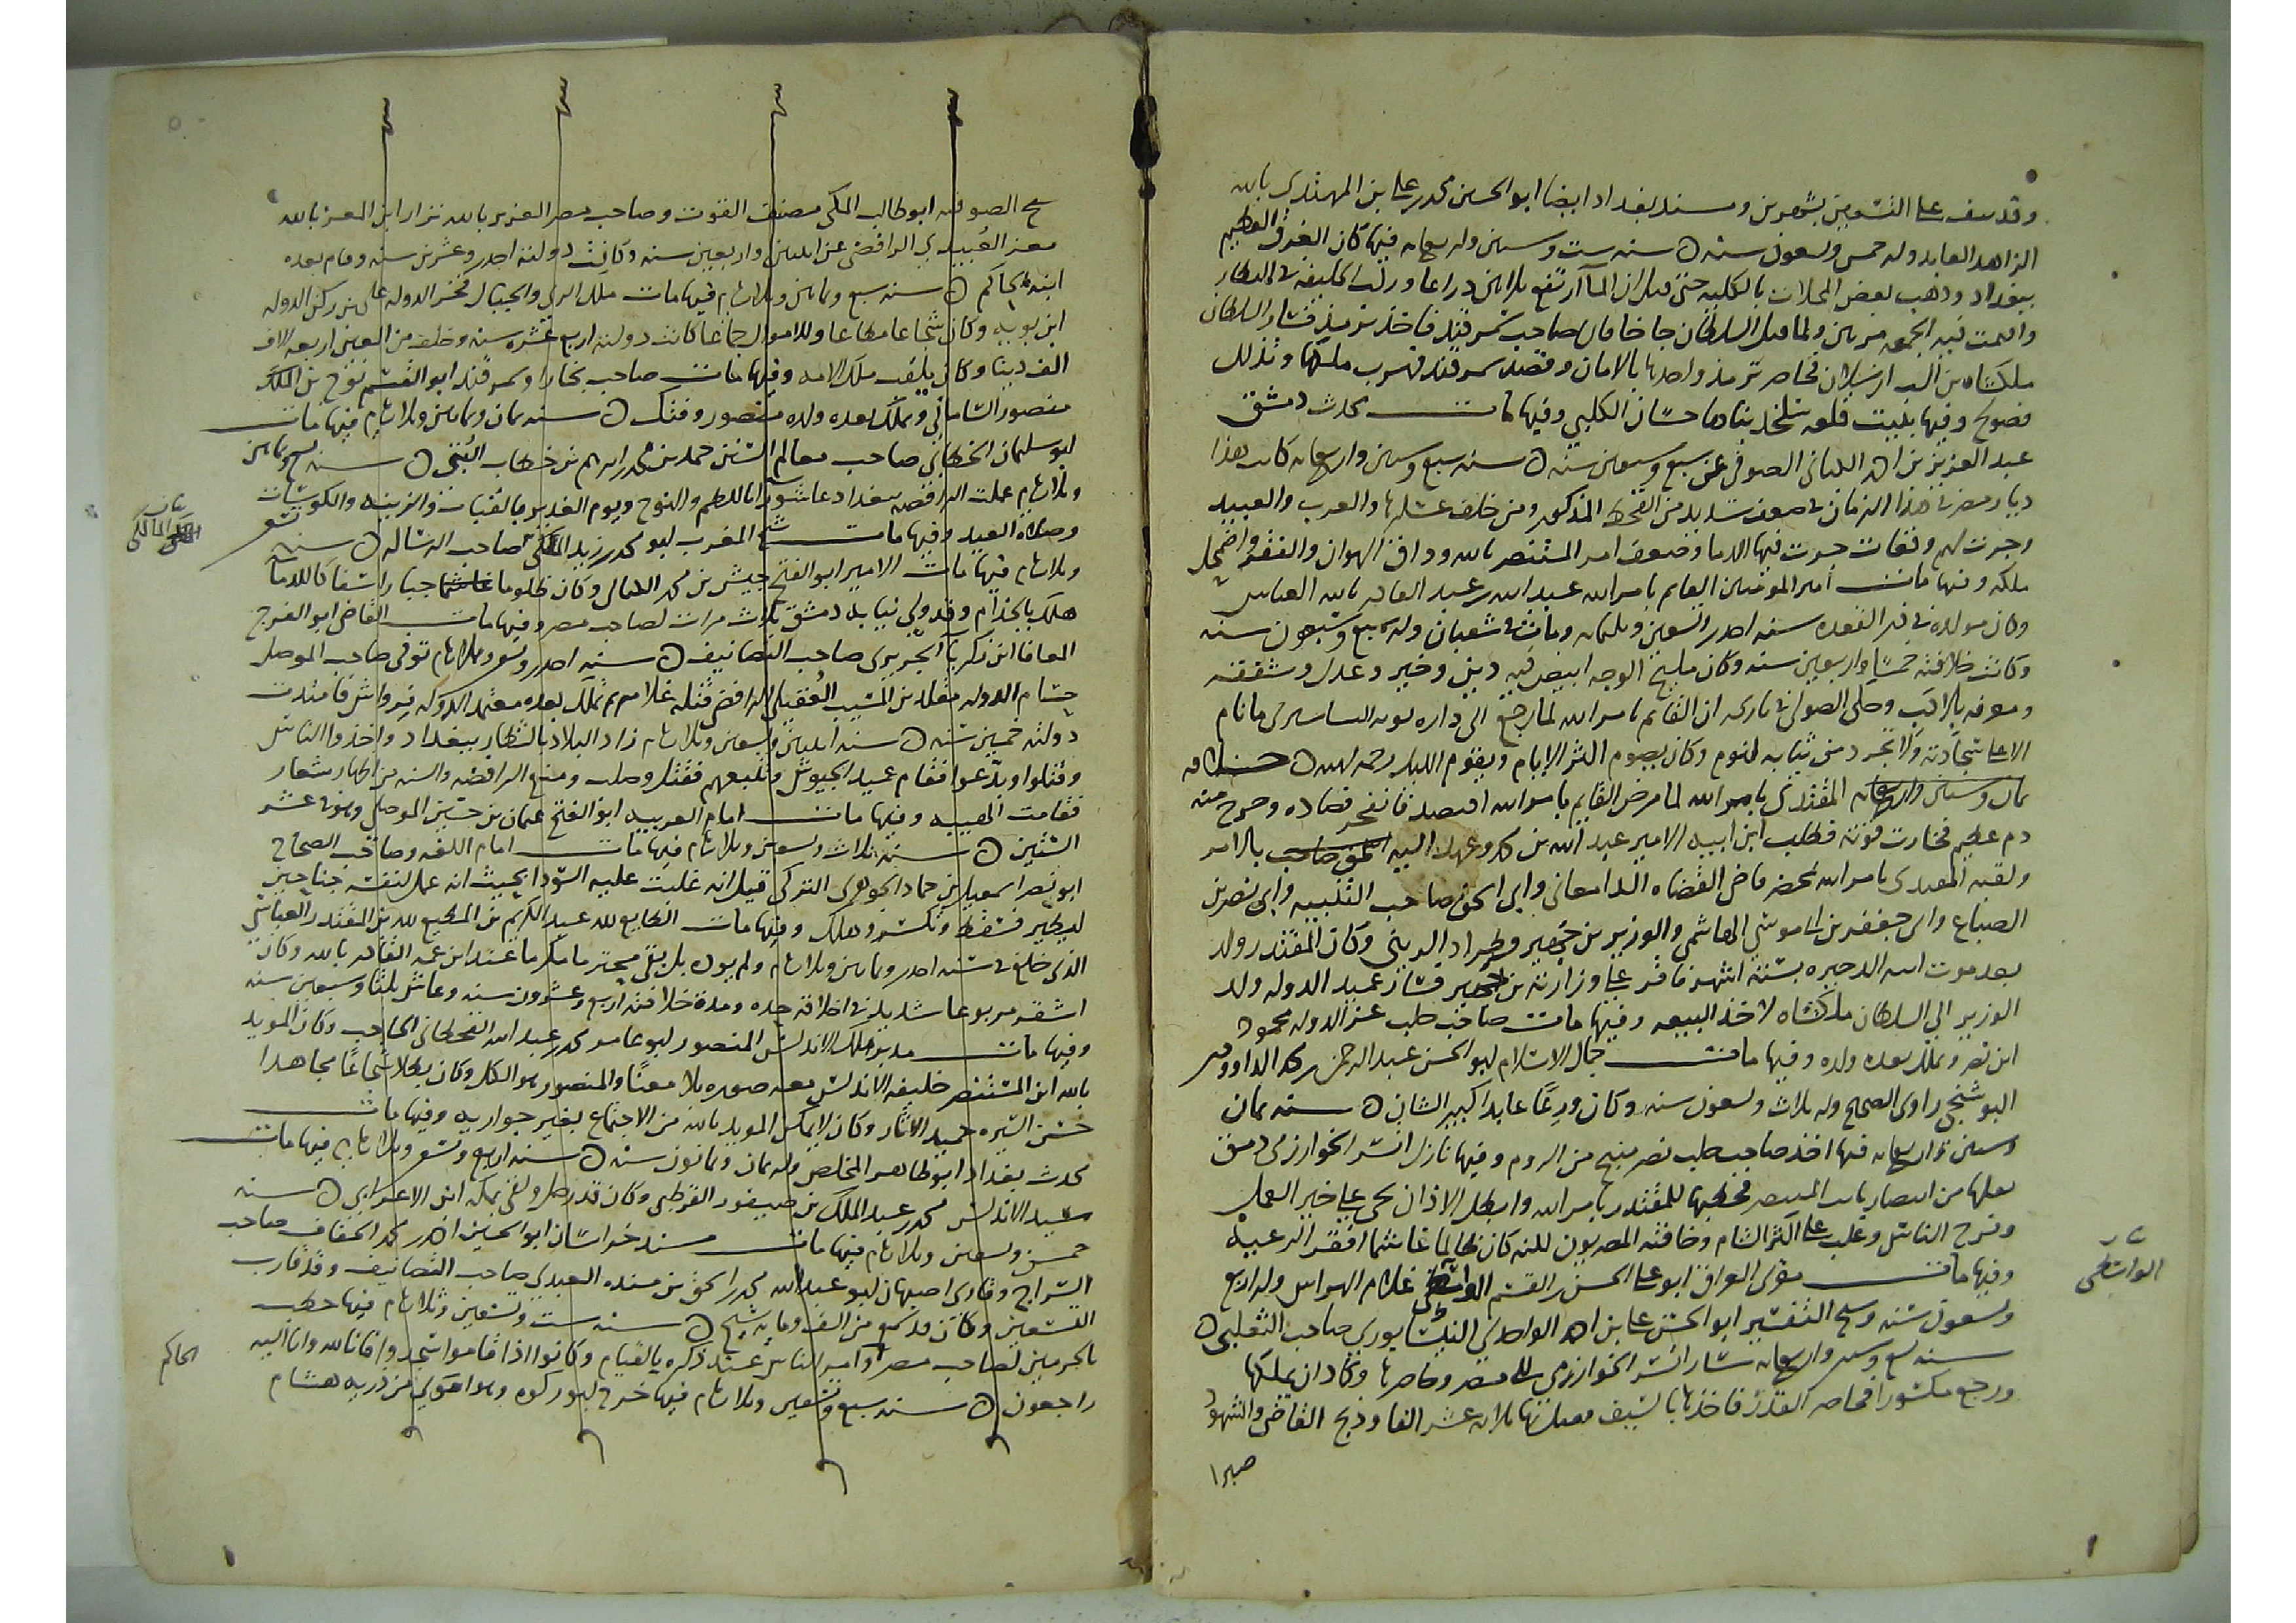 وقد نيف على التسعين بشهرين ومسند بغداد ايضا ابو الحسين محمد بن علي بن المهتدي بالله
الزاهد العابد وله خمس وتسعون سنه ه سنه ست وستين واربعمايه فيها كان الغرق العظيم
ببغداد وذهب بعض المحلات بالكليه حتى قيل ان الماء ارتفع ثلاثين ذراعا وركب الخليفه في
واقيمت فيه الجمعه مرتين ولما قتل السلطان جا خاقان صاحب سمرقند فاخذ ترمذ فسار السلطان
ملكشاه بن الب ارسلان فحاصر ترمذ واخدها بالامان وقصد سمرقند فهرب ملكها وتذلل
فصولح وفيها بنيت قلعه صلخد بناها حسان الكلبي وفيها مات محدث دمشق
عبد العزيز بن احمد الكتاني الصوفي عن سبع وسبعين سنه ه سنه سبع وستين واربعمايه كانت هذا
ديار مصر في هذا الزمان في ضعف شديد من القحط المذكور ومن خلف عسكرها والعرب والعبيد
وجرت لهم وقعات جرت فيها الدما وضعف امر المستنصر بالله وذاق الهوان والفقر واضمحل
ملكه وفيها مات امير المومنين القايم بامر الله عبد الله بن عبد القادر بالله العباسي
وكان مولده في ذي القعده سنه احدى وتسعين وثلثمايه ومات في شعبان وله سبع وسبعون سنه
وكانت خلافته خمسا واربعين سنه وكان مليح الوجه ابيض فيه دين وخير وعدل وشفقه
ومعرفه بالادب وحكى الصولي في تاريخه ان القايم بامر الله لما رجع الى داره نوبه البساسيري ما نام
الا على سجادته ولا تجرد من ثيابه لنوم وكان يصوم اكثر الايام ويقوم الليل رحمه الله ه سنه
ثمان وستين واربعمايه المقتدي بامر الله لما مرض القايم بامر الله افتصد فانفجر فصاده وخرج منه
دم عظيم فخارت قوته فطلب ابن ابنه الامير عبد الله بن محمد وعهد اليه بالامر
ولقبه المقتدي بامر الله بمحضر قاضي القضاه الدامغاني وابي اسحق صاحب التنبيه وابي نصر بن
الصباغ وابي جعفر بن ابي موسى الهاشمي والوزير بن جهير وطراد الزينبي وكان المقتدر ولد
بعد موت ابيه الدخيره بستة اشهر فاقر على وزارته بن جهير فسار عميد الدوله ولد
الوزير الى السلطان ملكشاه لاخذ البيعه وفيها مات صاحب حلب عز الدوله محمود
ابن نصر وتملك بعده ولده وفيها مات جمال الاسلام ابو الحسن عبد الرحمن بن محمد الداوودي
البوشنجي راوي الصحيح وله ثلاث وتسعون سنه وكان ورعا عابدا كبير الشان ه سنه ثمان
وستين واربعمايه فيها اخذ صاحب حلب نصر منبج من الروم وفيها نازل اتسز الخوارزمي دمشق
من انتصار نايب المستنصر فخطب بها للمقتدر بامر الله وابطل الاذان بحي على خير العمل
وفرح الناس وغلب على اكثر الشام وخافته المصريون لكنه كان ظالما غاشما افقر الرعيه
وفيها مات مقرى العراق ابو علي الحسن بن القسم الواسطي غلام الهراس وله اربع
وتسعون سنه وشيخ التفسير ابو الحسن علي بن احمد الواحدي النيسابوري صاحب الثعلبي ه
سنه تسع وستين واربعمايه سار اتسز الخوارزمي الى مصر وحاصرها وكاد ان يملكها
ورجع مكسورا فحاصر القدس فاخذها بالسيف فقتل بها ثلاثه عشر الفا وذبح القاضي والشهود
صبرا
الواسطي
شيخ الصوفيه ابو طالب المكي مصنف القوت وصاحب مصر العزيز بالله نزار ابن المعز بالله
معز العبيدي الرافضي عن اثنين واربعين سنه وكانت دولته احدى وعشرين سنه وقام بعده
ابنه الحاكم ه سنه سبع وثمانين وثلاثمايه فيها مات ملك الري والجبال فخر الدوله علي بن ركن الدوله
ابن بويه وكان شجاعا مطاعا وللاموال جماعا كانت دولته اربع عشره سنه وخلف من العين اربعه الاف
الف دينار وكان يلقب ملك الامه وفيها مات صاحب بخارا وسمرقند ابو القسم نوح بن الملك
منصور الساماني وتملك بعده ولده منصور وفتك ه سنه ثمان وثمانين وثلاثمايه فيها مات
ابو سليمان الخطابي صاحب معالم السنن حمد بن محمد بن ابرهيم بن خطاب البستي ه سنه تسع وثمانين
وثلاثمايه عملت الرافضه ببغداد عاشورا باللطم والنوح ويوم الغدير بالقباب والزينه والكوسات
وصلاه العيد وفيها مات شيخ المغرب ابو محمد بن ابي زيد المالكي صاحب الرساله ه سنه تسع
وثلاثمايه فيها مات الامير ابو الفتح جيش بن محمد الكتامي وكان ظلوما غاشما جبارا سفاكا للدما
هلك بالجذام وقد ولي نيابه دمشق ثلاث مرات لصاحب مصر وفيها مات القاضي ابو الفرج
المعافا ابن زكريا الجريري صاحب التصانيف ه سنه احدى وتسعين وثلاثمايه توفى صاحب الموصل
حسام الدوله مقلد بن المسيب العقيلي الرافضي قتله غلام له ثم تملك بعده معتمد الدوله قرواش فامتدت
دولته خمسين سنه ه سنه اثنين وتسعين وثلاثمايه زاد البلا بالشطار ببغداد واخذوا الناس
وقتلوا وبدعوا فقام عميد الجيوش وتتبعهم فقتل وصلب ومنع الرافضه والسنه من اظهار شعار
فقامت الهيبه وفيها مات امام العربيه ابو الفتح عثمان بن جني الموصلي وهو في عشر
الستين ه سنه ثلاث وتسعين وثلاثمايه فيها مات امام اللغه وصاحب الصحاح
ابو نصر اسمعيل بن حماد الجوهري التركي قيل انه غلبت عليه السودا بحيث انه عمل لنفسه جناحين
ليطير فسقط وتكسر وهلك وفيها مات الطايع لله عبد الكريم بن المطيع لله بن المقتدر العباسي
الذي خلع في سنه احدى وثمانين وثلاثمايه ولم يوذ بل بقى محترما مكرما عند ابن عمه القادر بالله وكان
اشقر مربوعا شديدا في اخلاقه حده ومدة خلافته اربع وعشرون سنه وعاش ثلثا وسبعين سنه
وفيها مات مدبر ملك الاندلس المنصور ابو عامر محمد بن عبد الله القحطاني الحاجب وكان المويد
بالله ابن المستنصر خليفه الاندلس معه صوره بلا معنى والمنصور هو الكل وكان بطلا شجاعا مجاهدا
حسن السيره حميد الاثار وكان لا يمكن المويد بالله من الاجتماع بغير جواريه وفيها مات
محدث بغداد ابو طاهر المخلص وله ثمان وثمانون سنه ه سنه اربع وتسعين وثلاثمايه فيها مات
مسند الاندلس محمد بن عبد الملك بن صيفور القرطبي وكان قد رحل ولقى بمكه ابن الاعرابي ه سنه
خمس وتسعين وثلاثمايه فيها مات مسند خراسان ابو الحسين احمد بن محمد الخفاف صاحب
السراج وفادى اصبهان ابو عبد الله محمد بن اسحق بن منده العبدي صاحب التصانيف وقد قارب
التسعين وكان قد سمع من الف ومايه شيخ ه سنه ست وتسعين وثلاثمايه فيها خطب
بالحرمين لصاحب مصر وامر الناس عند ذكره بالقيام وكانوا اذا قاموا سجدوا فانا لله وانا اليه
راجعون ه سنه سبع وتسعين وثلاثمايه فيها خرج ابو ركوه وهو اموي من ذريه هشام
المالكي
الحاكم